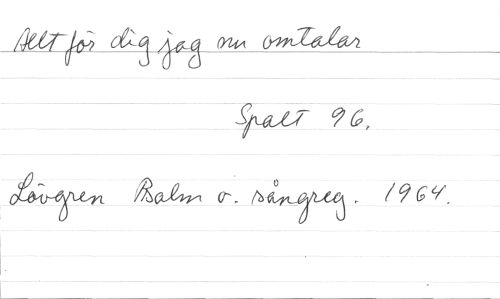 Allt för dig jag nu omtalar
Spalt 96.
Lövgren Psalm o. sångreg. 1964.